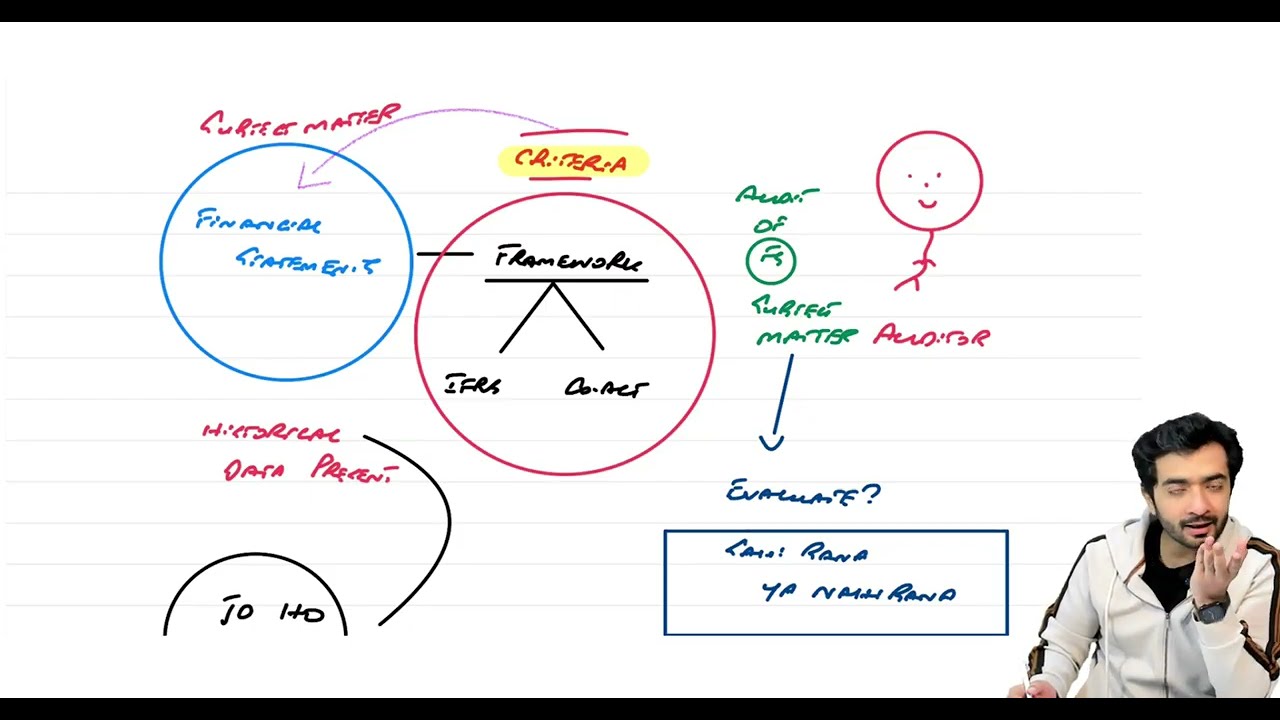 SUBJECT MATTER
CRITERIA
FINANCIAL
STATEMENTS
FRAMEWORK
IFRS
CO. ACT
HISTORICAL
DATA PRESENT
JO HO
AUDIT
OF
FS
SUBJECT
MATTER
AUDITOR
EVALUATE?
SAHI BANA
YA NAHI BANA